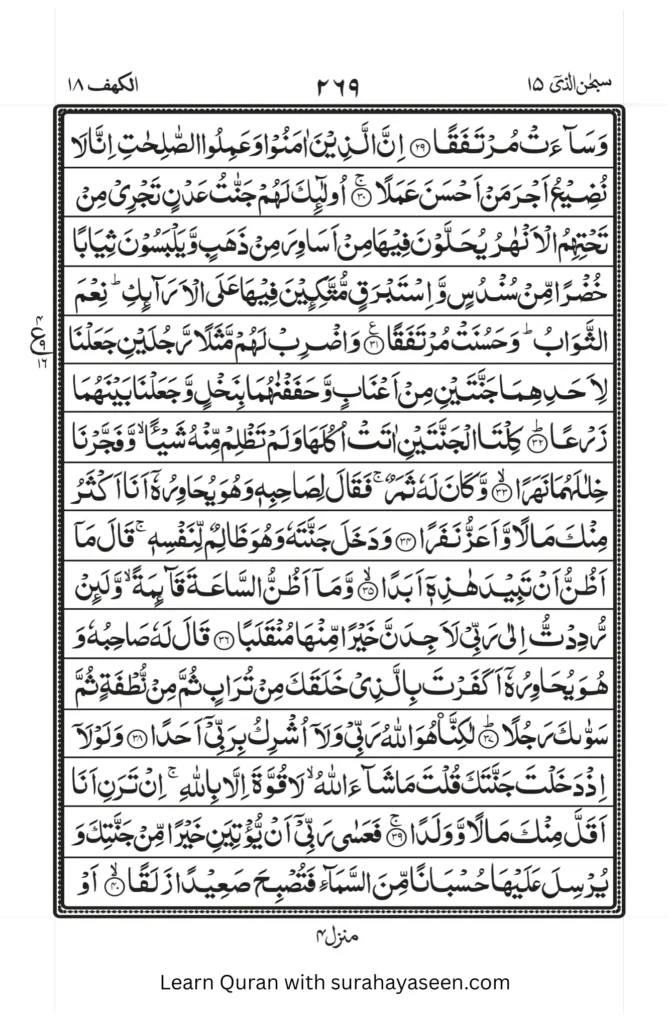 سبحٰن الذیٓ ۱۵
۲۶۹
الکهف ۱۸
وَسَآءَتْ مُرْتَفَقًا ﴿۲۹﴾ اِنَّ الَّذِيْنَ اٰمَنُوْا وَعَمِلُوا الصّٰلِحٰتِ اِنَّا لَا
نُضِيْعُ اَجْرَ مَنْ اَحْسَنَ عَمَلًا ۚ﴿۳۰﴾ اُولٰٓئِكَ لَهُمْ جَنّٰتُ عَدْنٍ تَجْرِيْ مِنْ
تَحْتِهِمُ الْاَنْهٰرُ يُحَلَّوْنَ فِيْهَا مِنْ اَسَاوِرَ مِنْ ذَهَبٍ وَّيَلْبَسُوْنَ ثِيَابًا
خُضْرًا مِّنْ سُنْدُسٍ وَّاِسْتَبْرَقٍ مُّتَّكِـِٕيْنَ فِيْهَا عَلَى الْاَرَآئِكِ ؕ نِعْمَ
الثَّوَابُ ؕ وَحَسُنَتْ مُرْتَفَقًا ﴿۳۱﴾ۧ وَاضْرِبْ لَهُمْ مَّثَلًا رَّجُلَيْنِ جَعَلْنَا
۴
ع
۹
۱۶
لِاَحَدِهِمَا جَنَّتَيْنِ مِنْ اَعْنَابٍ وَّحَفَفْنٰهُمَا بِنَخْلٍ وَّجَعَلْنَا بَيْنَهُمَا
زَرْعًا ؕ﴿۳۲﴾ كِلْتَا الْجَنَّتَيْنِ اٰتَتْ اُكُلَهَا وَلَمْ تَظْلِمْ مِّنْهُ شَيْـًٔا ۙ وَّفَجَّرْنَا
خِلٰلَهُمَا نَهَرًا ۙ﴿۳۳﴾ وَّكَانَ لَهٗ ثَمَرٌ ۚ فَقَالَ لِصَاحِبِهٖ وَهُوَ يُحَاوِرُهٗٓ اَنَا اَكْثَرُ
مِنْكَ مَالًا وَّاَعَزُّ نَفَرًا ﴿۳۴﴾ وَدَخَلَ جَنَّتَهٗ وَهُوَ ظَالِمٌ لِّنَفْسِهٖ ۚ قَالَ مَآ
اَظُنُّ اَنْ تَبِيْدَ هٰذِهٖٓ اَبَدًا ۙ﴿۳۵﴾ وَّمَآ اَظُنُّ السَّاعَةَ قَآئِمَةً ۙ وَّلَئِنْ
رُّدِدْتُّ اِلٰى رَبِّيْ لَاَجِدَنَّ خَيْرًا مِّنْهَا مُنْقَلَبًا ﴿۳۶﴾ قَالَ لَهٗ صَاحِبُهٗ وَ
هُوَ يُحَاوِرُهٗٓ اَكَفَرْتَ بِالَّذِيْ خَلَقَكَ مِنْ تُرَابٍ ثُمَّ مِنْ نُّطْفَةٍ ثُمَّ
سَوّٰىكَ رَجُلًا ؕ﴿۳۷﴾ لٰكِنَّا۠ هُوَ اللّٰهُ رَبِّيْ وَلَآ اُشْرِكُ بِرَبِّيْٓ اَحَدًا ﴿۳۸﴾ وَلَوْلَآ
اِذْ دَخَلْتَ جَنَّتَكَ قُلْتَ مَا شَآءَ اللّٰهُ ۙ لَا قُوَّةَ اِلَّا بِاللّٰهِ ۚ اِنْ تَرَنِ اَنَا
اَقَلَّ مِنْكَ مَالًا وَّوَلَدًا ۚ﴿۳۹﴾ فَعَسٰى رَبِّيْٓ اَنْ يُّؤْتِيَنِ خَيْرًا مِّنْ جَنَّتِكَ وَ
يُرْسِلَ عَلَيْهَا حُسْبَانًا مِّنَ السَّمَآءِ فَتُصْبِحَ صَعِيْدًا زَلَقًا ۙ﴿۴۰﴾ اَوْ
منزل ۴
Learn Quran with surahayaseen.com